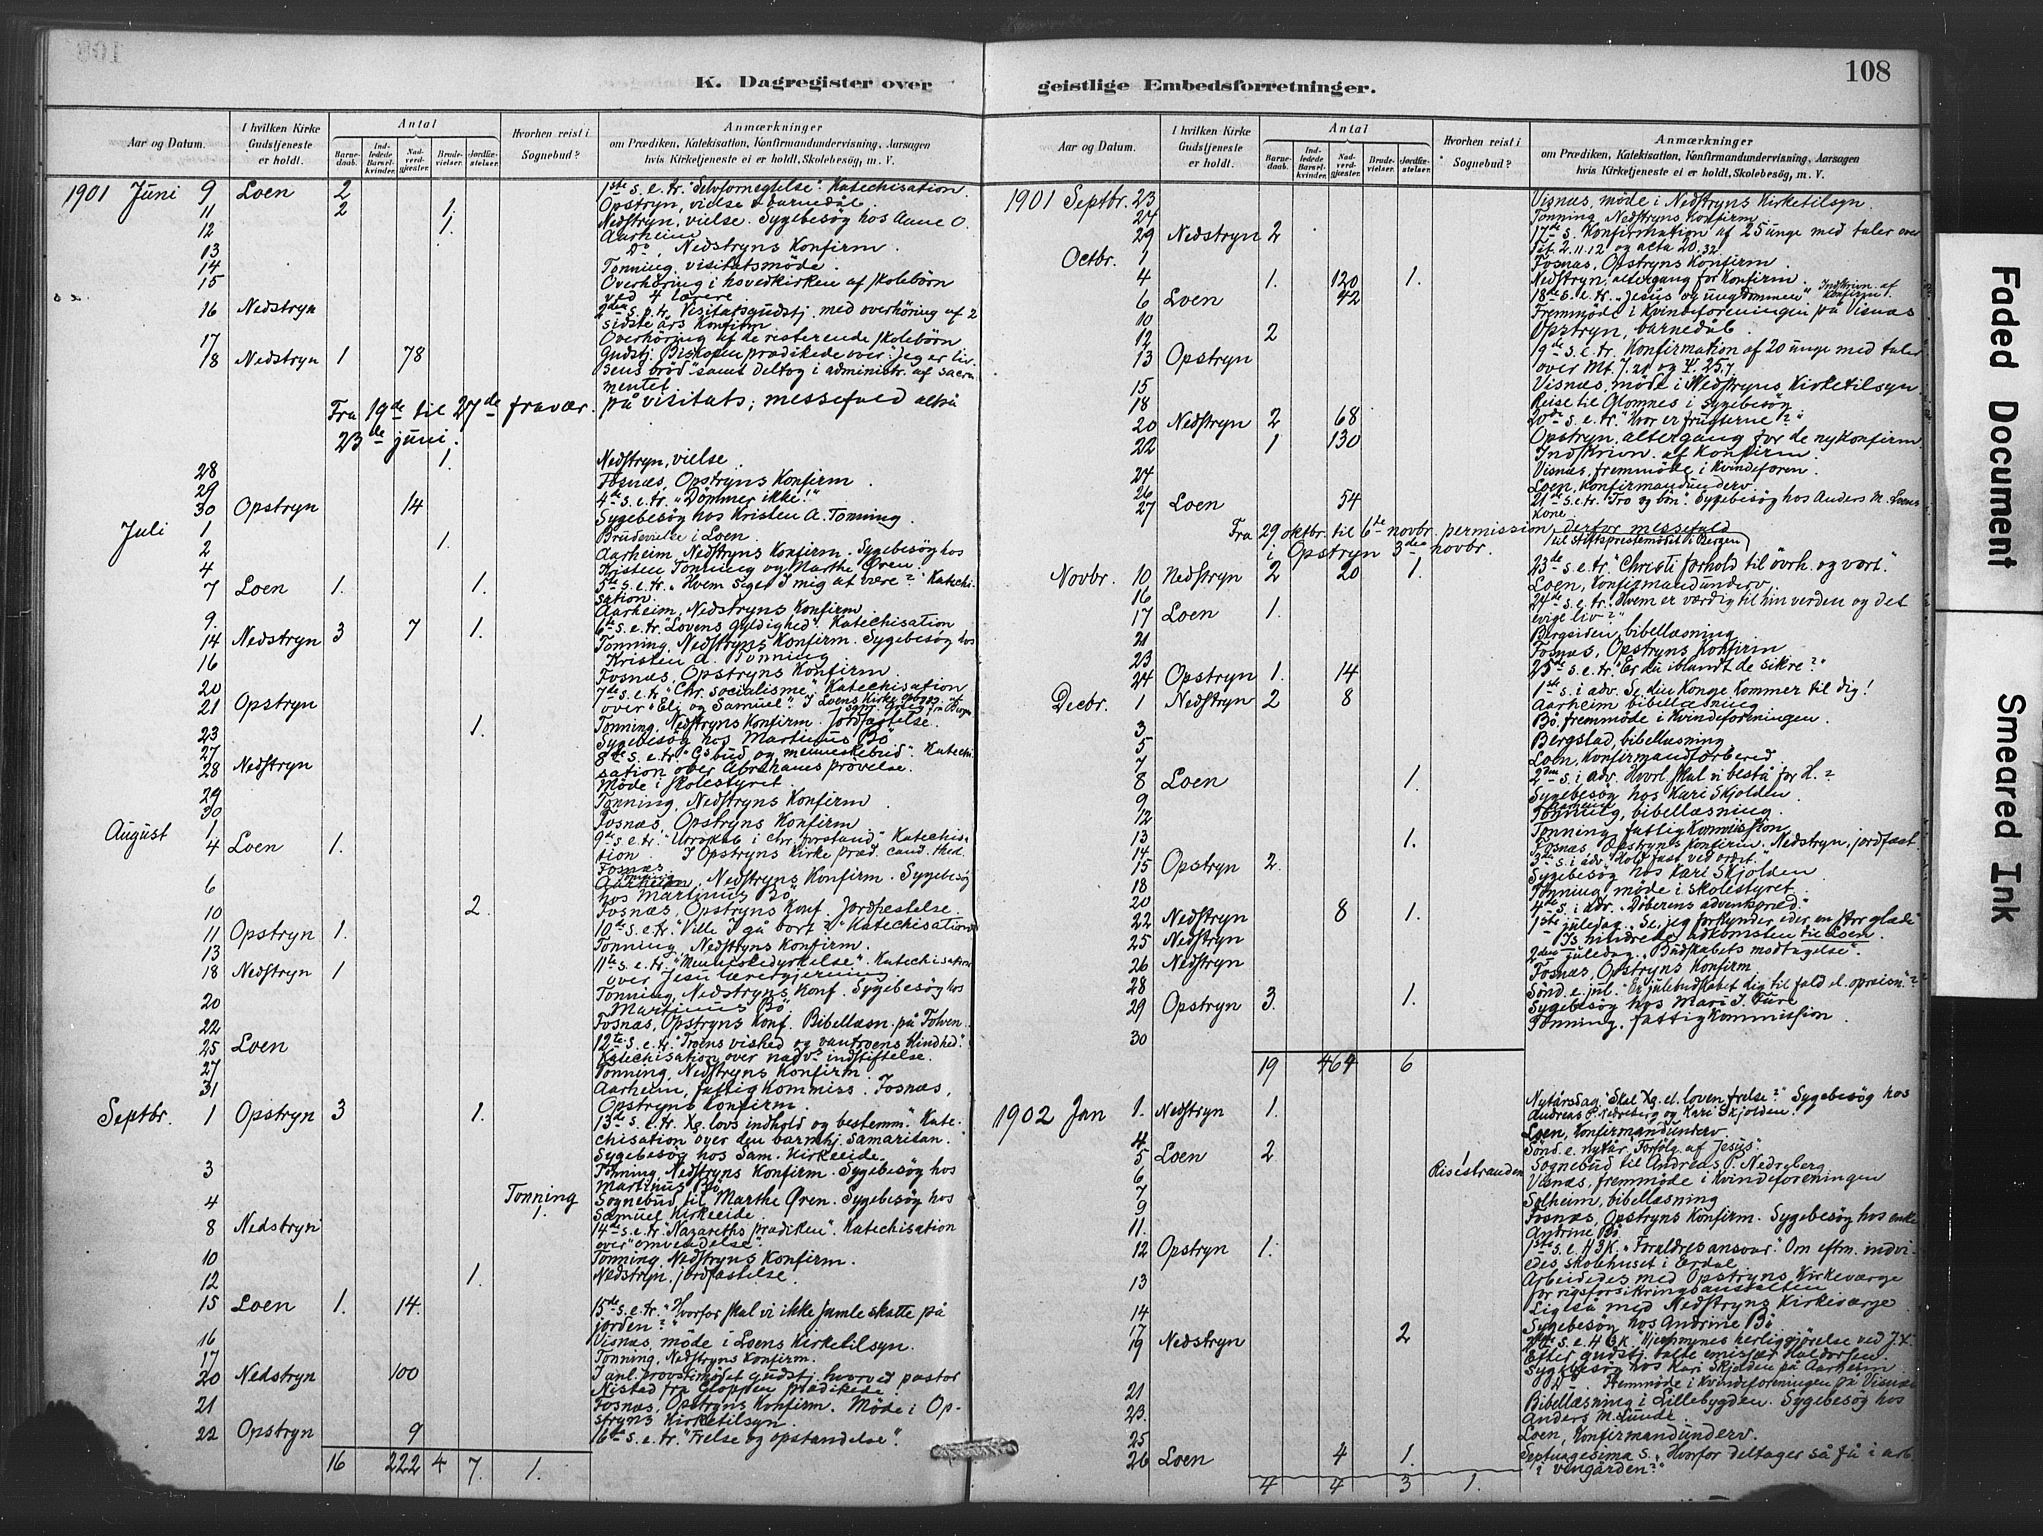 108
K. Dagregister over
Aar og Datum.
I hvilken Kirke Gudstjeneste er holdt.
Antal
Barnedaab.
Indledede Barselkvinder.
Nadverdgjester.
Brudevielser.
Jordfæstelser.
Hvorhen reist i Sognebud?
Anmærkninger
om Prædiken, Katekisation, Konfirmandundervisning, Aarsagen
hvis Kirketjeneste ei er holdt, Skolebesøg, m. V.
1901 Juni 9 Loen 2 1ste s. e. tr. "Selvfornegtelse". Katechisation
11 2 1. Opstryn, vielse & barnedåb.
12 1. Nedstryn, vielse. Sygebesøg hos Anne O.
Aarheim
13 Do, Nedstryns Konfirm.
14 Tonning, visitatsmøde.
15 Overhøring i hovedkirken af skolebörn
ved 4 lærere
16 Nedstryn 2den s. e. tr. Visitatsgudstj. med overhøring af 2
sidste års Konfirm.
17 Overhøring af de resterende skolebörn
18 Nedstryn 1 78 Gudstj. Biskopen prædikede over: "Jeg er liv-
sens brød" samt deltog i administr. af sacra-
mentet.
Fra 19de til 27de fravær. på visitats; messefald altså
23de juni.
28 1. Nedstryn, vielse
29 Fosnæs, Opstryns Konfirm.
30 Opstryn 14 4de s. e. tr. "Dømmer ikke!"
Juli 1 Sygebesøg hos Kristen A. Tonning.
2 1. Brudevielse i Loen.
4 Aarheim, Nedstryns Konfirm. Sygebesøg hos
Kristen Tonning og Marthe Øren.
7 Loen 1. 1. 5te s. e. tr. "Hvem siger I mig at være?" Katechi-
sation.
9. Aarheim, Nedstryns Konfirm.
14 Nedstryn 3 7 1. 6te s. e. tr. "Lovens gyldighed". Katechisation
16 Tonning, Nedstryns Konfirm. Sygebesøg hos
Kristen A. Tonning
20 Fosnæs, Opstryns Konfirm.
21 Opstryn 7de s. e. tr. "Chr. socialisme". Katechisation
over "Eli og Samuel". I Loens Kirke
23 1. Tonning, Nedstryns Konfirm. Jordfæstelse.
27 Sygebesøg hos Martinus Bö
28 Nedstryn 8de s. e. tr. "Gs bud og menneskebud". Katechi-
sation over Abrahams prøvelse.
29 Møde i skolestyret.
30 Tonning, Nedstryns Konfirm.
August 1 Fosnæs, Opstryns Konfirm
4 Loen 1. 9de s. e. tr. "Utroskab i chr. forstand". Katechisa-
tion. I Opstryns Kirke præd. cand.
Fosnæs
6 Aarheim, Nedstryns Konfirm. Sygebesøg
hos Martinus Bö
10 2. Fosnæs, Opstryns Konf. Jordfæstelse
11 Opstryn 1. 10de s. e. tr. "Ville I gå bort?" Katechisation
13 Tonning, Nedstryns Konfirm.
18 Nedstryn 1 11te s. e. tr. "Menneskedyrkelse". Katechisation
over Jesu lærergjerning.
20 Tonning, Nedstryns Konf. Sygebesøg hos
Martinus Bö
22 Fosnæs, Opstryns Konf. Bibellæsn. på Tolven.
25 Loen 12te s. e. tr. "Troens vished og vantroens blindhed."
Katechisation over nadvs. indstiftelse.
27 Tonning, Nedstryns Konfirm.
31 Aarheim, fattigkommiss. Fosnæs,
Opstryns Konfirm.
Septbr. 1 Opstryn 3 1. 13de s. e. tr. Kg. lovs indhold og bestemm." Kate-
chisation over den barmhj. samaritan.
Sygebesøg hos Sam. Kirkeeide
3 Tonning, Nedstryns Konfirm. Sygebesøg hos
Martinus Bö
4 Tonning 1. Sognebud til Marthe Øren. Sygebesøg hos
Samuel Kirkeeide
8 Nedstryn 14de s. e. tr. "Nazareths prædiken". Katechisation
over "omvendelse".
10 Tonning, Nedstryns Konfirm.
12 1. Nedstryn, jordfæstelse.
15 Loen 1. 14. 15de s. e. tr. "Hvorfor skal vi ikke samle skatte på
jorden?"
16 Visnæs, møde i Loens Kirketilsyn.
17 Tonning, Nedstryns Konfirm.
20 Nedstryn 100 I anl. provstimødet gudstj. hvorved pastor
Nistad fra Gloppen prædikede.
21 Fosnæs, Opstryns Konfirm. Møde i Op-
stryns Kirketilsyn.
22 Opstryn 9 16de s. e. tr. "Frelse og opstandelse".
16 222 4 7. 1.
geistlige Embedsforretninger.
108
Aar og Datum.
I hvilken Kirke Gudstjeneste er holdt.
Antal
Barnedaab.
Indledede Barselkvinder.
Nadverdgjester.
Brudevielser.
Jordfæstelser.
Hvorhen reist i Sognebud?
Anmærkninger
om Prædiken, Katekisation, Konfirmandundervisning, Aarsagen
hvis Kirketjeneste ei er holdt, Skolebesøg, m. V.
1901 Septbr. 23 Visnæs, møde i Nedstryns Kirketilsyn.
24 Tonning, Nedstryns Konfirm
29 Nedstryn 2 17de s. Konfirmation af 25 unge med taler over
Tit. 2.11.12 og acta 20.32.
Octbr. 1 Fosnæs, Opstryns Konfirm.
4 1. 120 1. Nedstryn, altergang for Konfirm.
6 Loen 42 18de s. e. tr. "Jesus og ungdommen" Indskrivn. af Konfirm.
10 Fremmøde i Kvindeforeningen på Visnæs
12 2 Opstryn, barnedåb.
13 Opstryn 19de s. e. tr. Konfirmation af 20 unge med taler
over Mt. 7.21 og 25.7.
15 Visnæs, møde i Nedstryns Kirketilsyn
18 Reise til Glomnes i sygebesøg
20 Nedstryn 2 68 20de s. e. tr. "Hvor er frugterne?"
22 1 130 Opstryn, altergang for de nykonfirm.
Indskrivn. af Konfirm.
24 Visnæs, fremmøde i Kvindeforen.
26 Loen, Konfirmandunderv.
27 Loen 54 21de s. e. tr. "Tro og bön". Sygebesøg hos Anders M. Loens
Kone.
Fra 29 oktbr. til 6te novbr. permission, derfor messefald
i Opstryn 3die novbr. (til Stiftsprestemødet i Bergen)
Novbr. 10 Nedstryn 2 20 1. 23de s. e. tr. "Christi forhold til övrh. og vort."
16 Loen, Konfirmandunderv.
17 Loen 1. 24de s. e. tr. "Hvem er værdig til hin verden og det
evige liv?"
21 Bergsiden, bibellæsning
23 Fosnæs, Opstryns Konfirm
24 Opstryn 1. 14 25de s. e. tr. "Er du iblandt de sikre?"
Decbr. 1 Nedstryn 2 8 1ste s. i adv. Se, din Konge Kommer til dig!
Aarheim, bibellæsning
3 Bö, fremmøde i Kvindeforeningen.
5 Bergstad, bibellæsning
7 Loen, Konfirmandforbered
8 Loen 1. 2den s. i adv. Hvorl. skal vi bestå for H.?
9 Sygebesøg hos Kari Skjolden
12 Tonning, bibellæsning.
13 1. Tonning, fattigkommission
14 Fosnæs, Opstryns Konfirm. Nedstryn, jordfæst.
15 Opstryn 2. 3die s. i adv. "Hold fast ved ordet."
18 Sygebesøg hos Kari Skjolden
20 Tonning, møde i skolestyret
22 Nedstryn 8 1. 4de s. i adv. "Döberens adventspræd."
25 Nedstryn 1ste juledag. "Se, jeg forkynder eder en stor glæde"
Is hindrede adkomsten til Loen.
26 Nedstryn 2den juledag. "Budskabets modtagelse".
28 Fosnæs, Opstryns Konfirm
29 Opstryn 3. 1. Sönd. e. jul. "Er julebudskabet dig til fald el. opreisn."?
Sygebesøg hos Mari J. Fure
30 Tonning, fattigkommission.
19 464 6
1902 Jan 1. Nedstryn 1. Nytårsdag "Skal Kg. el. loven frelse?" Sygebesøg hos
Andreas J. Nedreberg og Kari Skjolden.
4 Loen, Konfirmandunderv.
5 Loen 2 Sönd. e. nytår. "Forfölg. af Jesus"
6 Risestranden Sognebud til Andreas J. Nedreberg
7 Visnæs, fremmøde i Kvindeforeningen
9 Solheim, bibellæsning
11. Fosnæs, Opstryns Konfirm. Sygebesøg hos enke
Andrine Bö.
12 Opstryn 1. 1ste s. e. H3K. "Forældres ansvar". Om eftm. indvi-
edes skolehuset i Erdal
13 Arbeidedes med Opstryns Kirkeværge
for rigsforsikringsanstalten
14 Ligeså med Nedstryns Kirkeværge
17 Sygebesøg hos Andrine Bö
19 Nedstryn 2 2den s. e. H3K. "Hjemmenes herliggjørelse ved J. X."
Efter gudstj. talte emissær Haldorsen.
Sygebesøg hos Kari Skjolden på Aarheim
21 Fremmøde i Kvindeforeningen på Visnæs
23. Bibellæsning i Lillebygden. Sygebesøg hos
Anders M. Lunde.
25 Loen, Konfirmandunderv.
26 Loen 4 1. Septuagesima s. "Hvorfor deltager så få i arb.
i vingården?"
4 4 3 1.
Faded Document
Smeared Ink